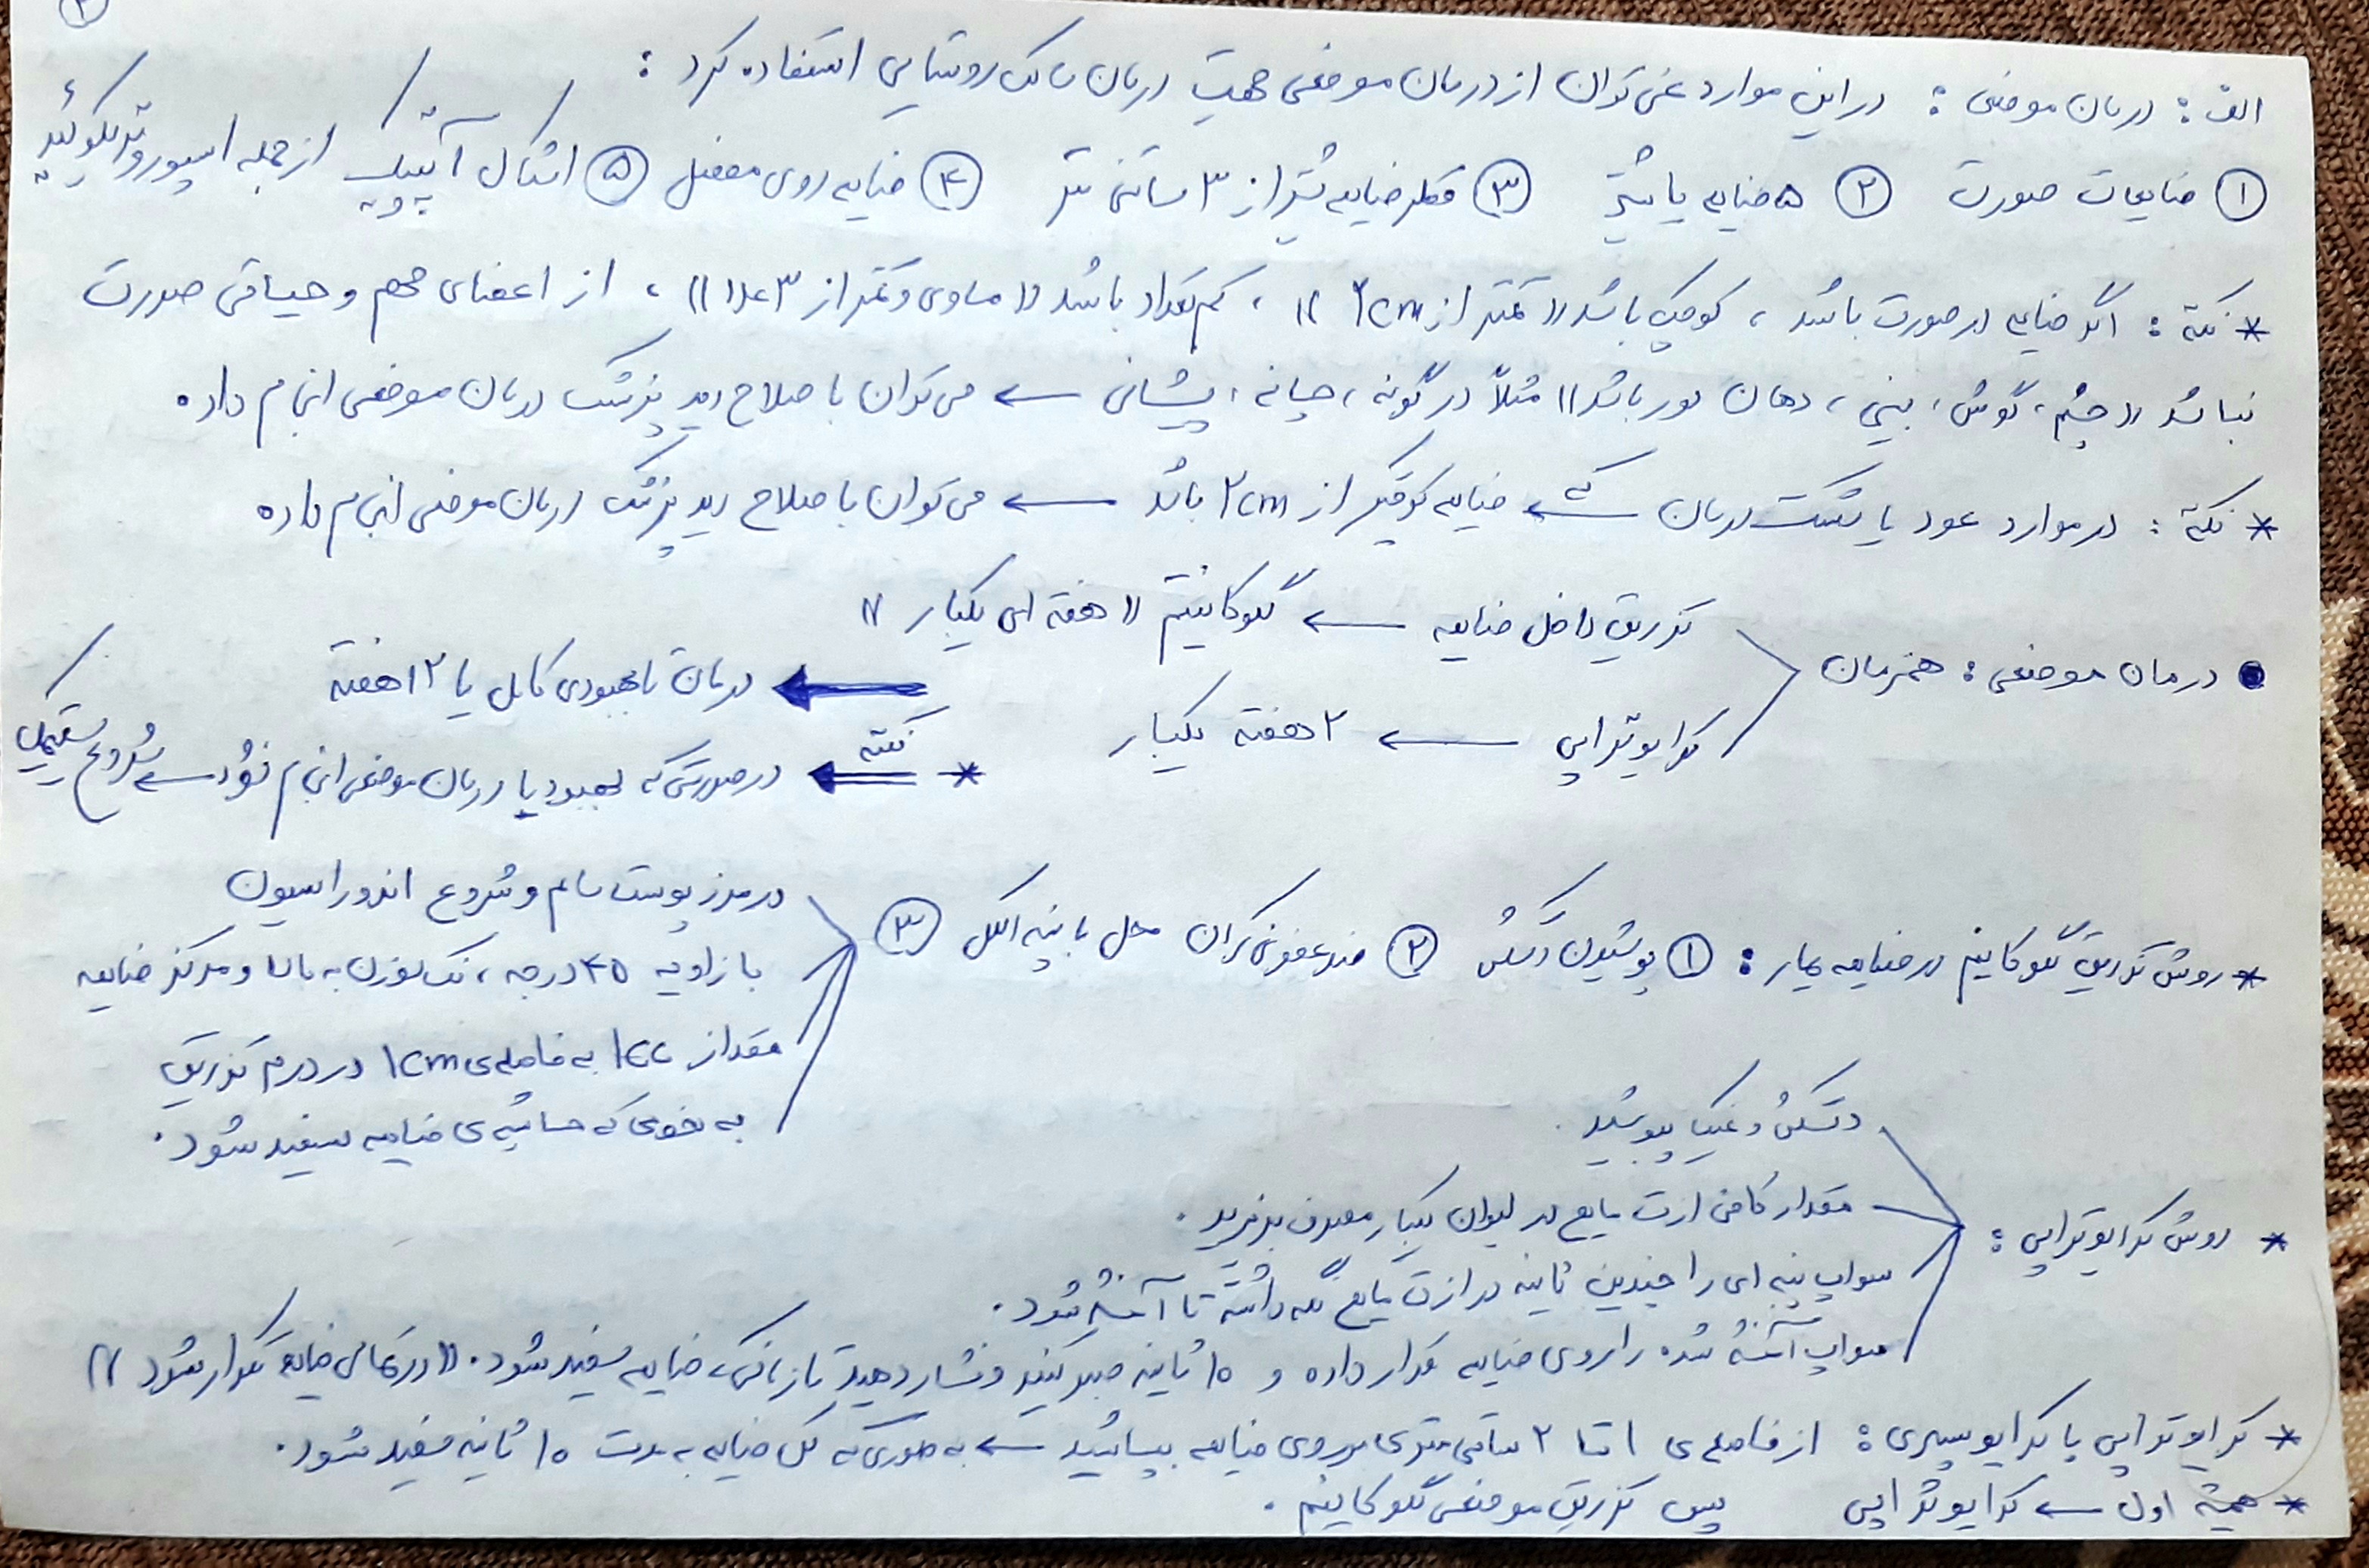 ۲
الف : درمان موضعی : در این موارد نمی توان از درمان موضعی جهت درمان سالک روستایی استفاده کرد :
① ضایعات صورت ② ۵ ضایعه یا بیشتر ③ قطر ضایعه بیشتر از ۳ سانتی متر ④ ضایعه روی مفصل ⑤ اشکال آتیپیک از جمله اسپوروتریکوئید
* نکته : اگر ضایعه در صورت باشد ، کوچک باشد (( کمتر از ۲cm )) ، کم تعداد باشد (( مساوی و کمتر از ۳ عدد )) ، از اعضای مهم و حیاتی صورت
نباشد (( چشم ، گوش ، بینی ، دهان دور باشد (( مثلاً در گونه ، چانه ، پیشانی ← می توان با صلاح دید پزشک درمان موضعی انجام داد.
* نکته : در موارد عود یا شکست درمان که ← ضایعه کوچکتر از ۲cm باشد ← می توان با صلاح دید پزشک درمان موضعی انجام داد.
تزریق داخل ضایعه ← گلوکانتیم (( هفته ای یکبار ))
● درمان موضعی : همزمان
کرایوتراپی ← ۲ هفته یکبار
← درمان تا بهبودی کامل یا ۱۲ هفته
* نکته ← در صورتی که بهبود با درمان موضعی انجام نشود ← شروع سیستمیک
* روش تزریق گلوکانتیم در ضایعه بیمار : ① پوشیدن دستکش ② ضدعفونی کردن محل با پنبه الکل ③
در مرز پوست سالم و شروع اندوراسیون
با زاویه ۴۵ درجه ، نک سوزن به بالا و مرکز ضایعه
مقدار ۱cc به فاصله ی ۱cm در درم تزریق
به نحوی که حاشیه ی ضایعه سفید شود.
* روش کرایوتراپی :
دستکش و عینک بپوشید.
مقدار کافی ازت مایع در لیوان یکبار مصرف بریزید.
سواپ پنبه ای را چندین ثانیه در ازت مایع نگه داشته تا آغشته شود.
سواپ آغشته شده را روی ضایعه قرار داده و ۱۵ ثانیه صبر کنید و فشار دهید تا زمانی که ضایعه سفید شود. (( در تمامی ضایعه تکرار شود ))
* کرایوتراپی با کرایو اسپری : از فاصله ی ۱ تا ۲ سانتی متری بر روی ضایعه بپاشید ← به طوری که کل ضایعه به مدت ۱۵ ثانیه سفید شود.
* همیشه اول ← کرایوتراپی سپس تزریق موضعی گلوکانتیم.